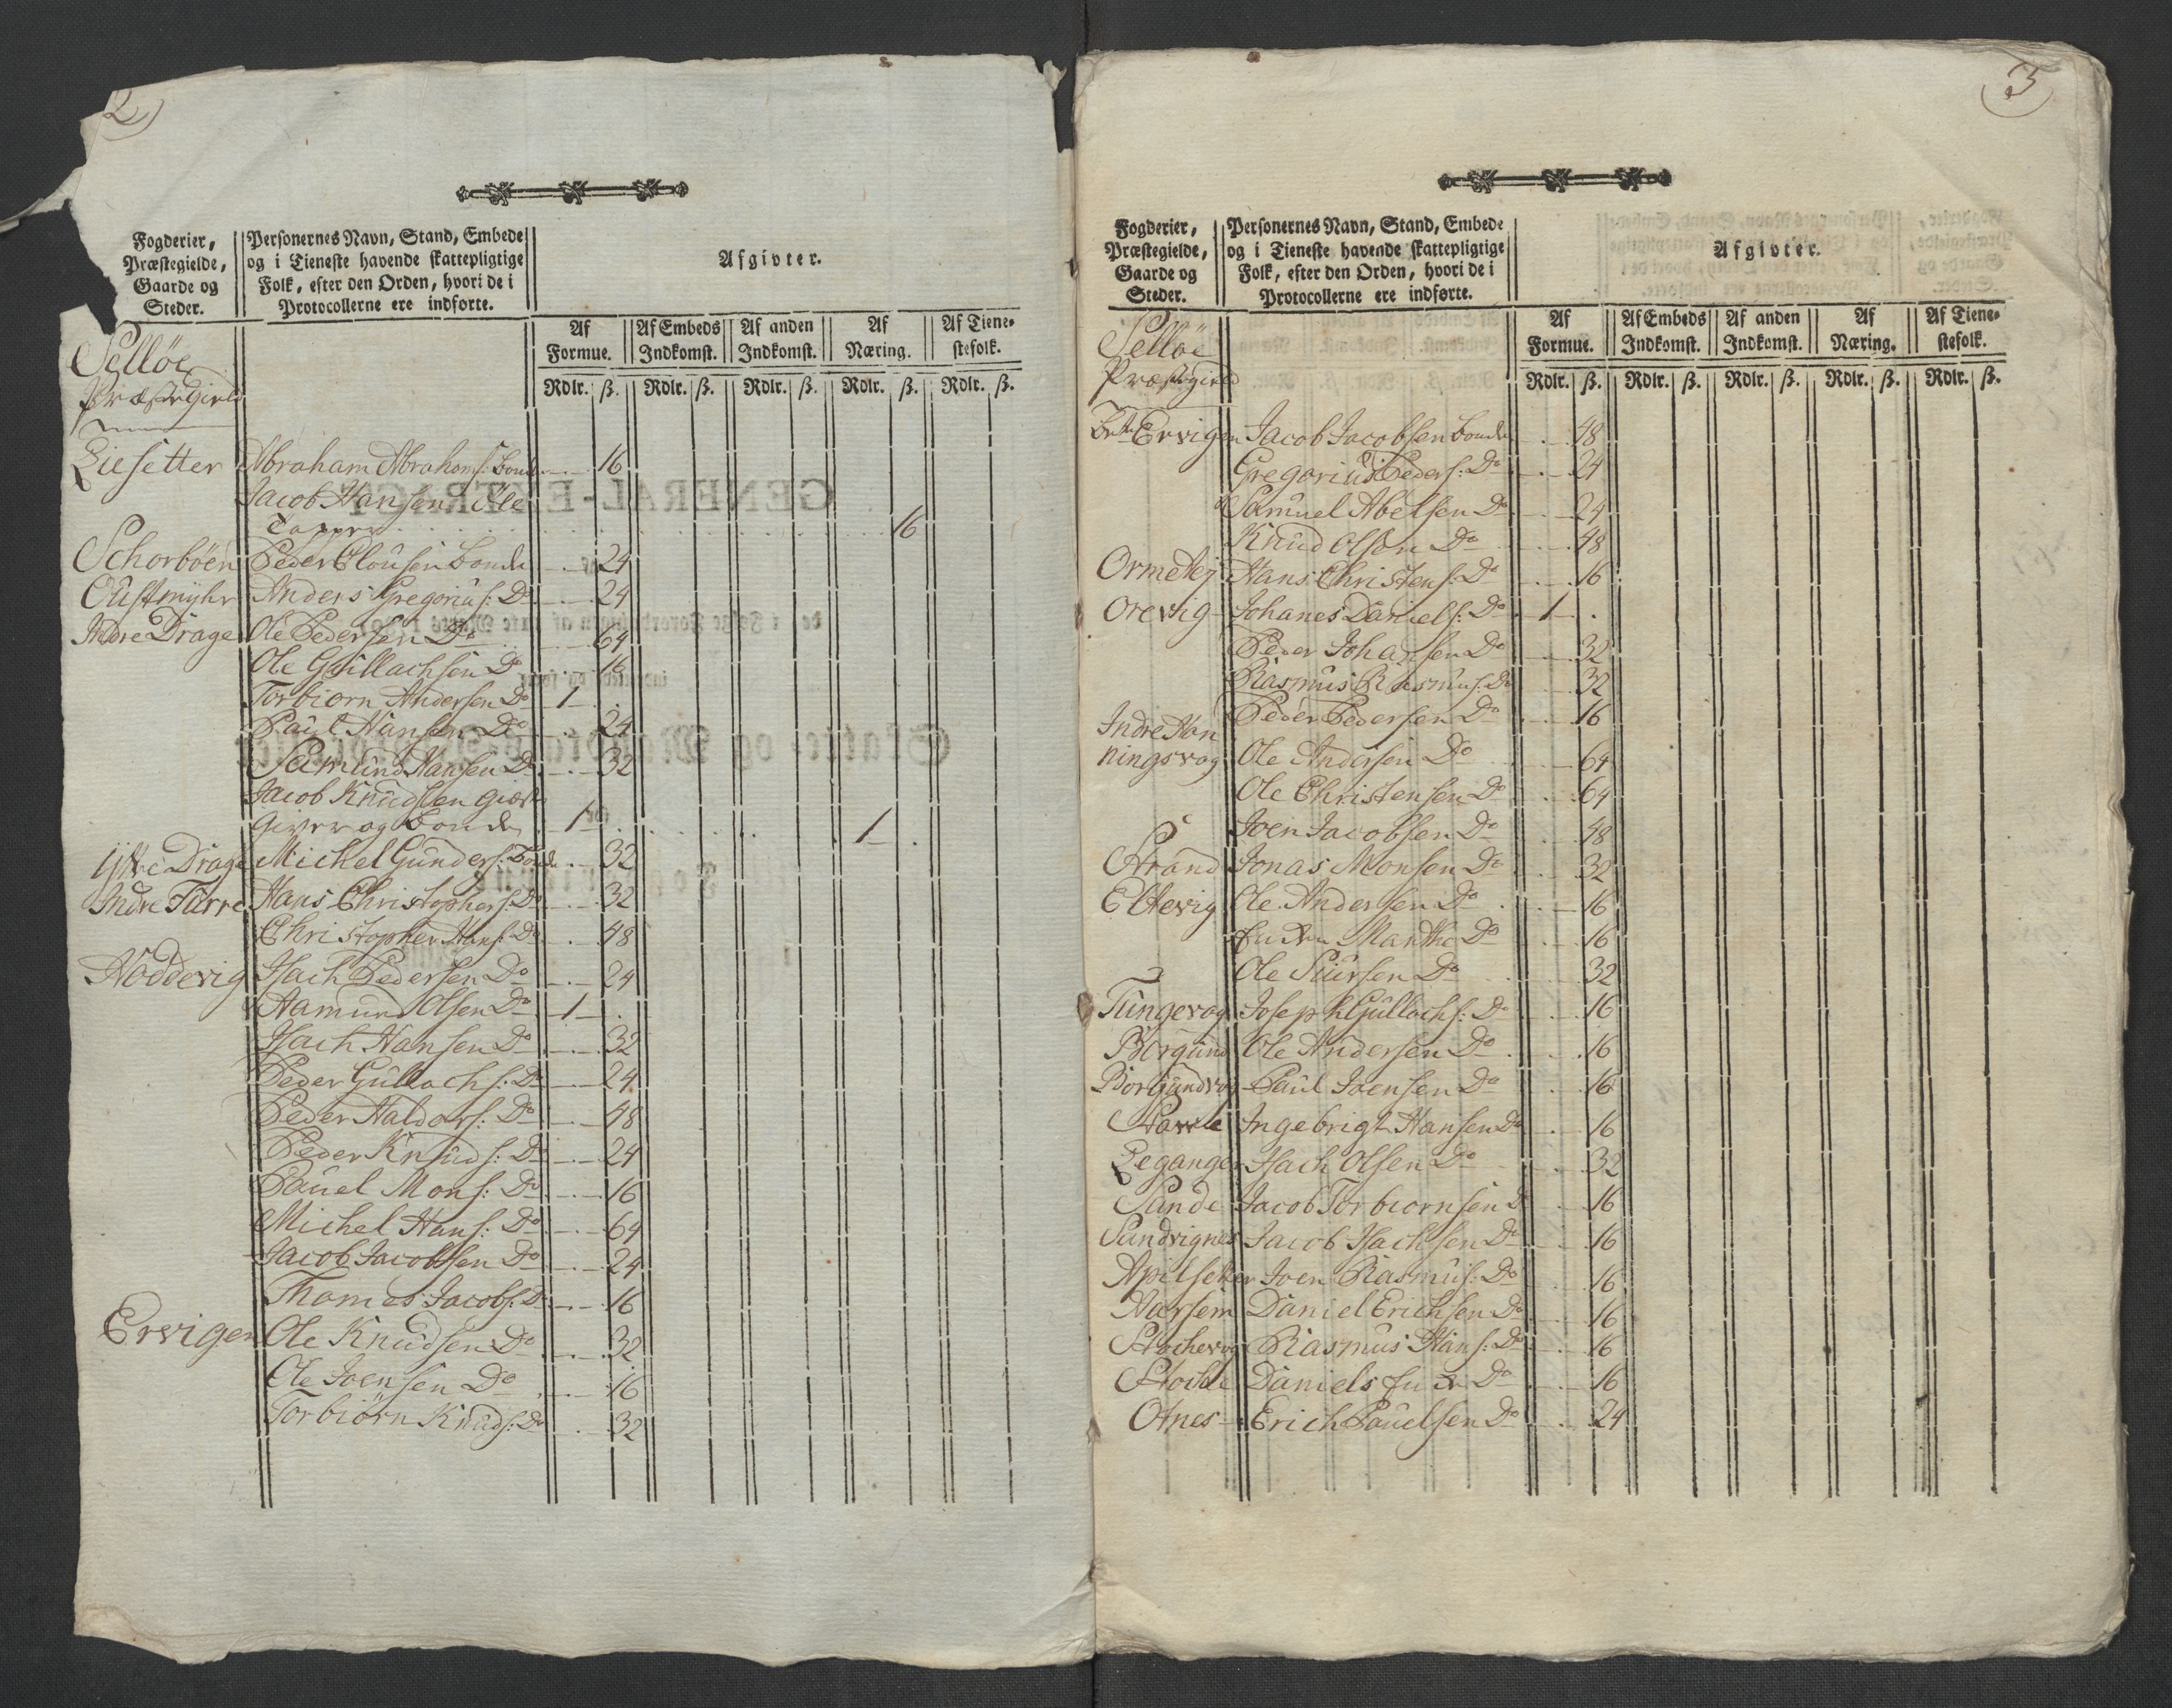 2)
Fogderier,
Præstegielde,
Gaarde og
Steder.
Personernes Navn, Stand, Embede
og i Tieneste havende skattepligtige
Folk, efter den Orden, hvori de i
Protocollerne ere indførte.
Afgivter.
Af Formue. Af Embeds Indkomst. Af anden Indkomst. Af Næring. Af Tienestefolk.
Rdlr. ß. Rdlr. ß. Rdlr. ß. Rdlr. ß. Rdlr. ß.
Selløe
Præstegield
Liesetter Abraham Abrahams: bonde 16
Jacob Hansen Øle
Tapper 16
Schorbøen Peder Clousen bonde 24
Oustmyhr Anders Gregorius: Do 24
Indre Drage Ole Pedersen Do 64
Ole Gullachsen Do 16
Torbiorn Andersen Do 1
Paul Hansen Do 24
Samund Hansen Do 32
Jacob Knudsen giæst
giver og bonde 1 1
Ÿttre Drage Michel Gunders: bonde 32
Indre Farre Hans Christophers: Do 32
Christopher Hans: Do 48
Hoddevig Isach Pedersen Do 24
Aamund Olsen Do 1
Isach Hansen Do 32
Peder Gullachs: Do 24
Peder Haldors: Do 48
Peder Knuds: Do 24
Pouel Mons: Do 16
Michel Hans: Do 64
Jacob Jacobsen Do 24
Thomes Jacobs: Do 16
Ervigen Ole Knudsen Do 32
Ole Joensen Do 16
Torbiörn Knuds: Do 32
3
Fogderier,
Præstegielde,
Gaarde og
Steder.
Personernes Navn, Stand, Embede
og i Tieneste havende skattepligtige
Folk, efter den Orden, hvori de i
Protocollerne ere indførte.
Afgivter.
Af Formue. Af Embeds Indkomst. Af anden Indkomst. Af Næring. Af Tienestefolk.
Rdlr. ß. Rdlr. ß. Rdlr. ß. Rdlr. ß. Rdlr. ß.
Selløe
Præstegield
Ervigen Jacob Jacobsen bonde 48
Gregorius Peders: Do 24
Samuel Abelsen Do 24
Knud Olsen Do 48
Ormehej Hans Christens: Do 16
Orevig Johanes Daniels: Do 1
Peder Johansen Do 32
Rasmus Rasmus: Do 32
Peder Pedersen Do 16
Indre Hon
ningsvog Ole Andersen Do 64
Ole Christensen Do 64
Joen Jacobsen Do 48
Strand Jonas Monsen Do 32
Eltevig Ole Andersen Do 16
Enken Marthe Do 16
Ole Siursen Do 32
Tungevog Joseph Gullachs: Do 16
Borgund Ole Andersen Do 16
Borgundvog Paul Joensen Do 16
Ingebrigt Hansen Do 16
Leganger Isach Olsen Do 32
Sande Jacob Torbiornsen Do 16
Sandvignes Jacob Isachsen Do 16
Apilseter Joen Rasmus: Do 16
Aarsem Daniel Erichsen Do 16
Stochevog Rasmus Hans: Do 16
Daniels Do 16
Otnes Erich Pauelsen Do 24